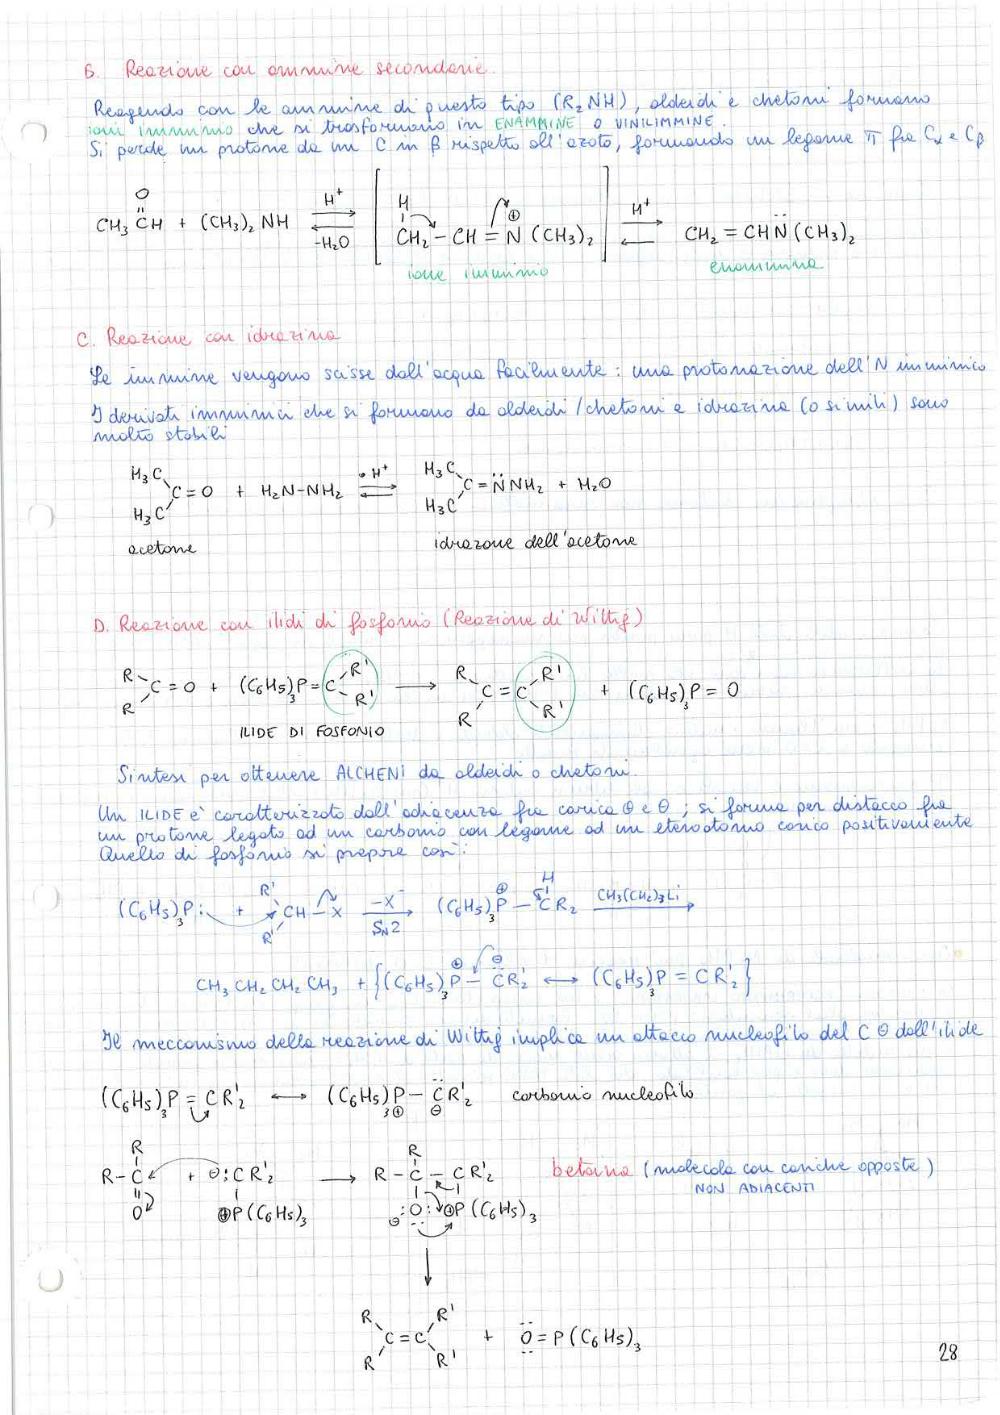 B. Reazione con ammine secondarie.
Reagendo con le ammine di questo tipo (R₂NH), aldeidi e chetoni formano
ioni imminio che si trasformano in ENAMMINE O VINILIMMINE.
Si perde un protone da un C in β rispetto all'azoto, formando un legame π fra Cα e Cβ
O
CH₃CH + (CH₃)₂NH H⁺ -H₂O H CH₂-CH=N(CH₃)₂ ⊕ H⁺ CH₂=CHN̈(CH₃)₂
ione imminio enammina
C. Reazione con idrazina
Le immine vengono scisse dall'acqua facilmente: una protonazione dell'N imminico
I derivati imminici che si formano da aldeidi/chetoni e idrazina (o simili) sono
molto stabili
H₃C H₃C C=O + H₂N-NH₂ H⁺ H₃C H₃C C=N̈NH₂ + H₂O
acetone idrazone dell'acetone
D. Reazione con ilidi di fosfonio (Reazione di Wittig)
R R C=O + (C₆H₅)₃P=C R' R' → R R C=C R' R' + (C₆H₅)₃P=O
ILIDE DI FOSFONIO
Sintesi per ottenere ALCHENI da aldeidi o chetoni.
Un ILIDE è caratterizzato dall'adiacenza fra carica ⊕ e ⊖; si forma per distacco fra
un protone legato ad un carbonio con legame ad un eteroatomo carico positivamente
Quello di fosfonio si prepara così:
(C₆H₅)₃P: + R' R' CH-X -X⁻ SN2 (C₆H₅)₃P⊕-CR₂ H CH₃(CH₂)₃Li
CH₃CH₂CH₂CH₃ + {(C₆H₅)₃P⊕-C̈⊖R'₂ ↔ (C₆H₅)₃P=CR'₂}
Il meccanismo della reazione di Wittig implica un attacco nucleofilo del C ⊖ dell'ilide
(C₆H₅)₃P=CR'₂ ↔ (C₆H₅)₃P⊕-C̈⊖R'₂ carbonio nucleofilo
R R
R-C + ⊖:CR'₂ → R-C-CR'₂ betaina (molecola con cariche opposte)
NON ADIACENTI
O ⊕P(C₆H₅)₃ ⊖:O: ⊕P(C₆H₅)₃
R R C=C R' R' + Ö=P(C₆H₅)₃
28